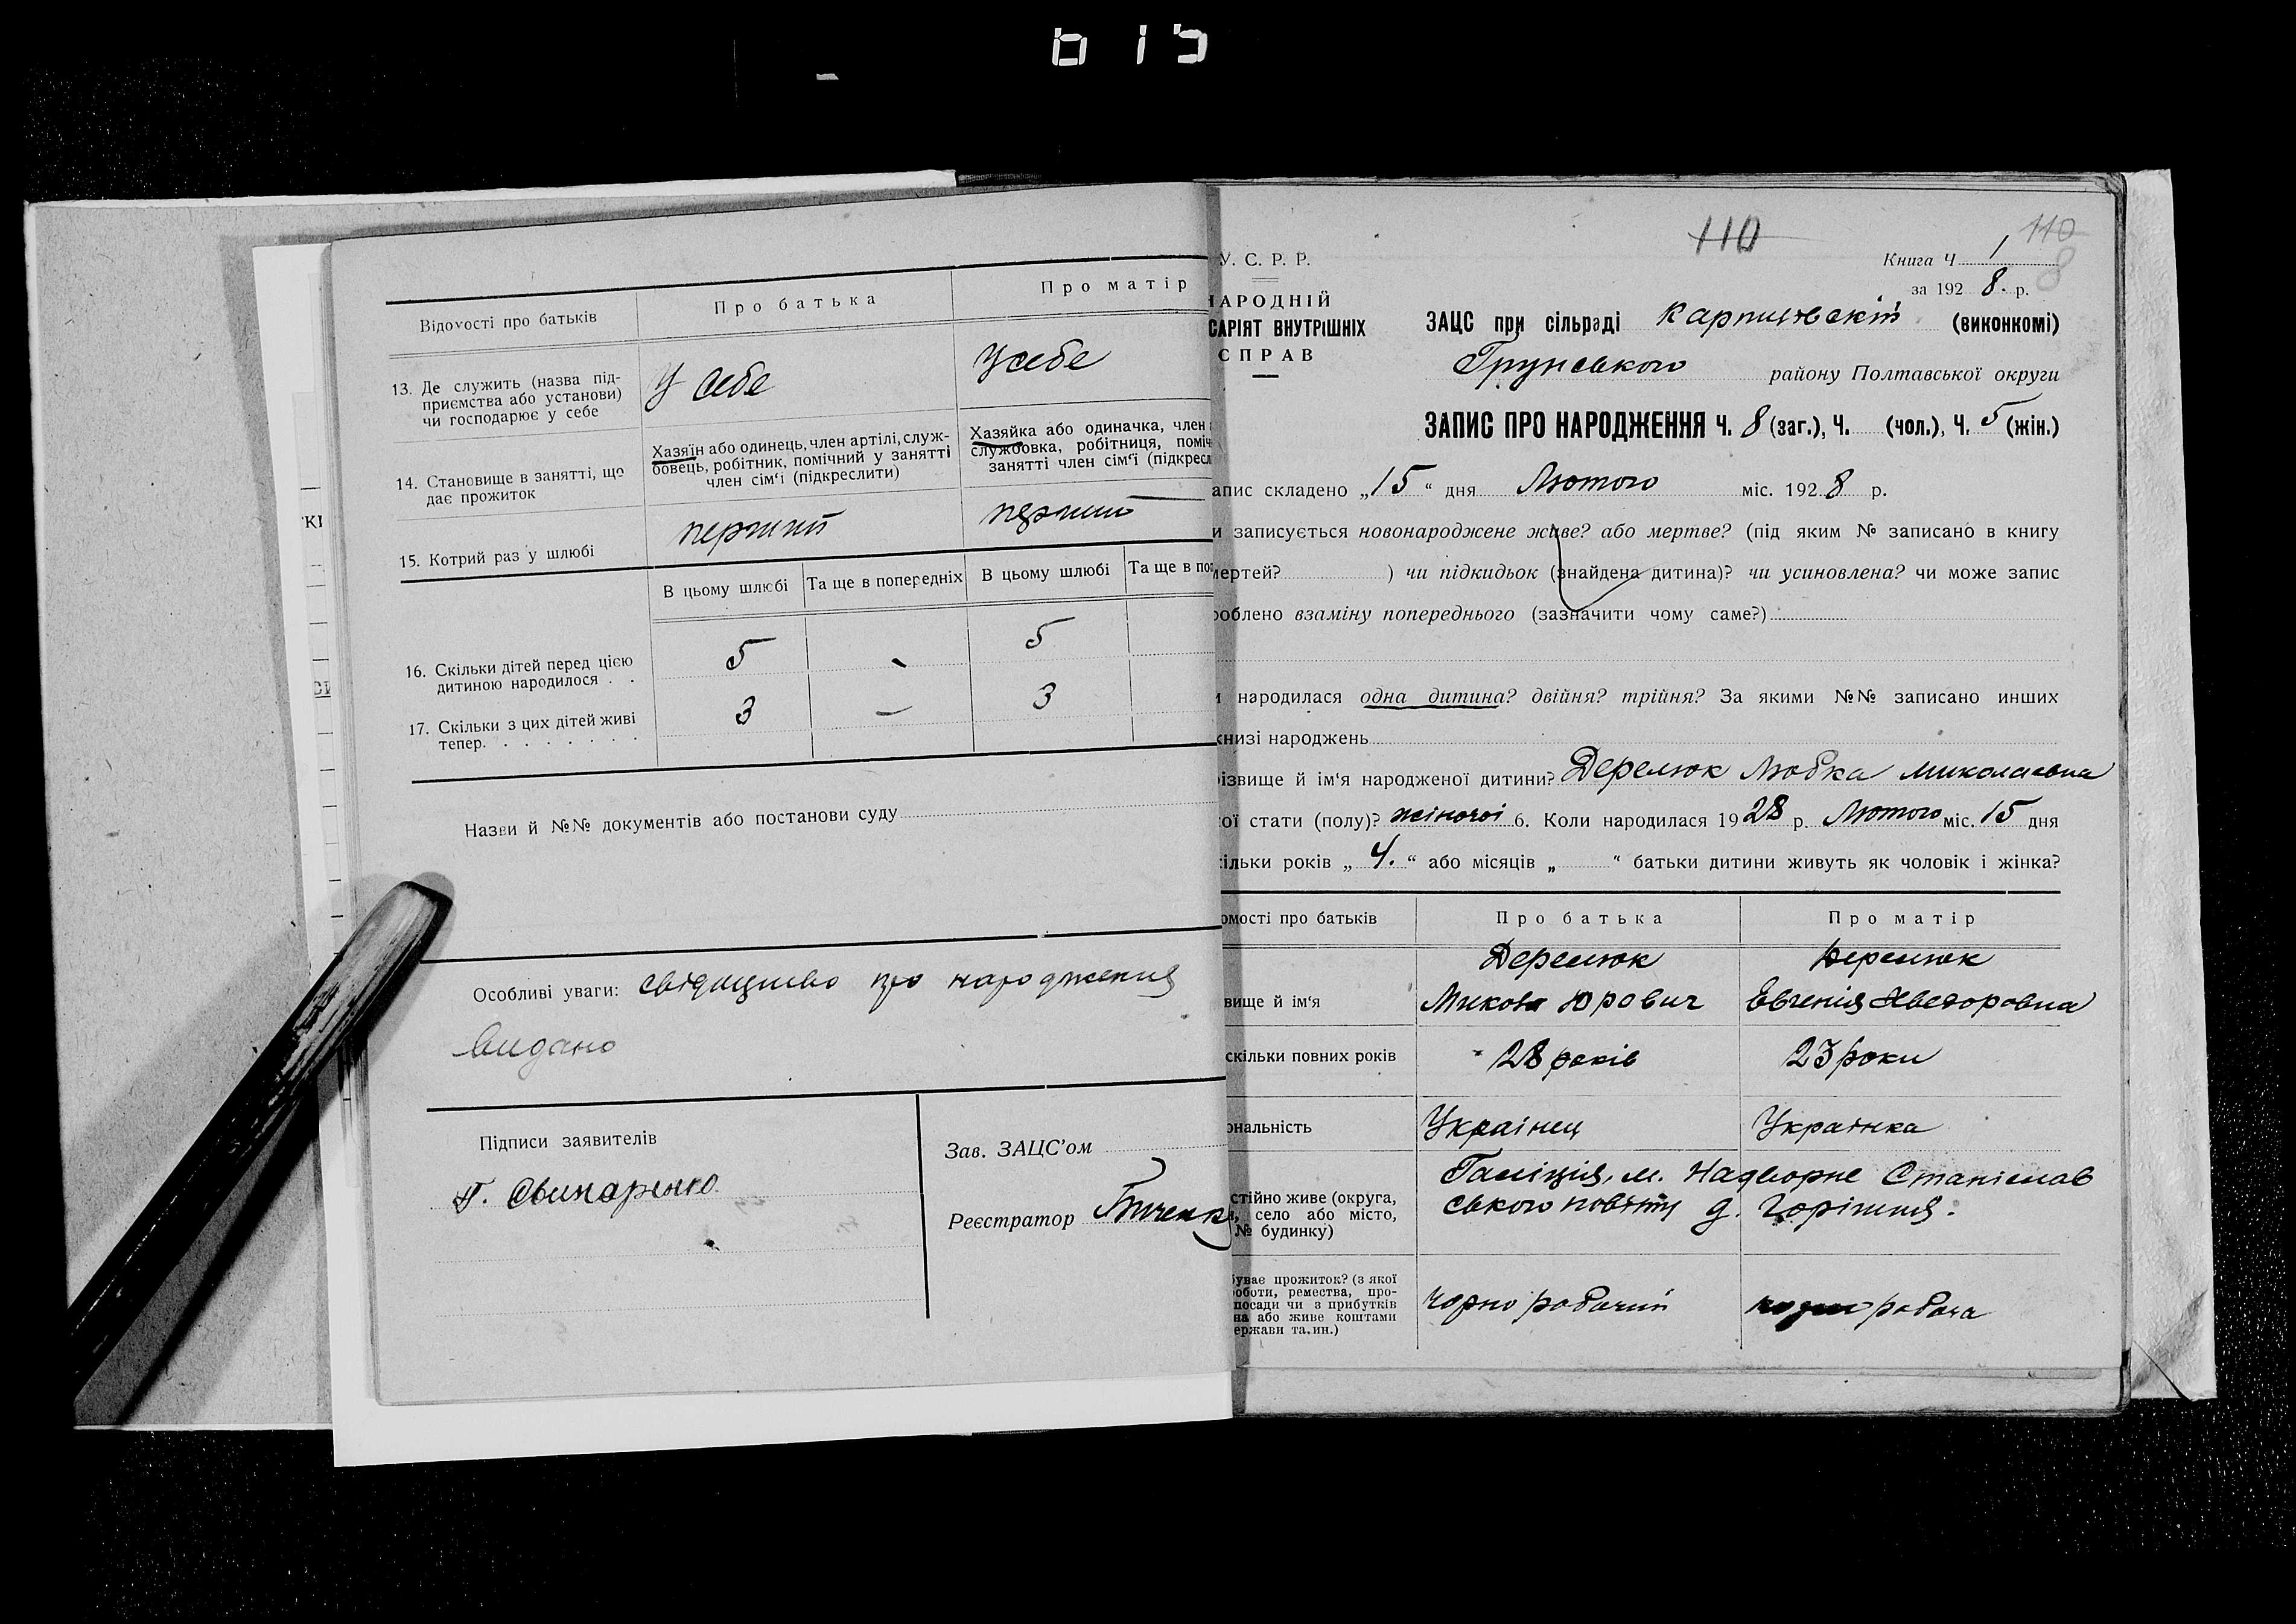 Відомості про батьків
Про батька
Про матір
13. Де служить (назва під-
приємства або установи)
чи господарює у себе
У себе
У себе
14. Становище в занятті, що
дає прожиток
Хазяїн або одинець, член артілі, служ-
бовець, робітник, помічний у занятті
член сім'ї (підкреслити)
Хазяйка або одиначка, член
службовка, робітниця, поміч
занятті член сім'ї (підкресл
15. Котрий раз у шлюбі
перший
перший
В цьому шлюбі
Та ще в попередніх
В цьому шлюбі
Та ще в по
16. Скільки дітей перед цією
дитиною народилося . .
5
-
5
17. Скільки з цих дітей живі
тепер. . . . . . . .
3
—
3
Назви й №№ документів або постанови суду
Особливі уваги: свідицтво про народження
видано
Підписи заявителів
Свинаренко
Зав. ЗАЦС'ом
Реєстратор
110
110
8
У. С. Р. Р.
НАРОДНІЙ
САРІЯТ ВНУТРІШНІХ
СПРАВ
Книга Ч 1
за 1928. р.
ЗАЦС при сільраді (виконкомі)
Грунського району Полтавської округи
ЗАПИС ПРО НАРОДЖЕННЯ Ч. 8 (заг.), Ч. (чол.), Ч. 5 (жін.)
апис складено „15“ дня Лютого міс. 1928 р.
и записується новонароджене живе? або мертве? (під яким № записано в книгу
мертей? ) чи підкидьок (знайдена дитина)? чи усиновлена? чи може запис
роблено взаміну попереднього (зазначити чому саме?)
и народилася одна дитина? двійня? трійня? За якими №№ записано инших
книзі народжень
різвище й ім'я народженої дитини? Дерелюк Любка Миколаевна
ої стати (полу)? жіночоі 6. Коли народилася 1928 р. Лютого міс. 15 дня
ільки років „4.“ або місяців „ “ батьки дитини живуть як чоловік і жінка?
омості про батьків
Про батька
Про матір
вище й ім'я
Дерелюк
Микола Юрович
Дерелюк
Евгенія Хведоровна
скільки повних років
28 років
23 роки
ональність
Украінец
Украінка
стійно живе (округа,
село або місто,
№ будинку)
Галіція, м. Надворне Станіслав
ського повіту д. Горішня.
буває прожиток? (з якої
роботи, ремества, про-
посади чи з прибутків
на або живе коштами
ержави та.ин.)
чорно робочий
робоча